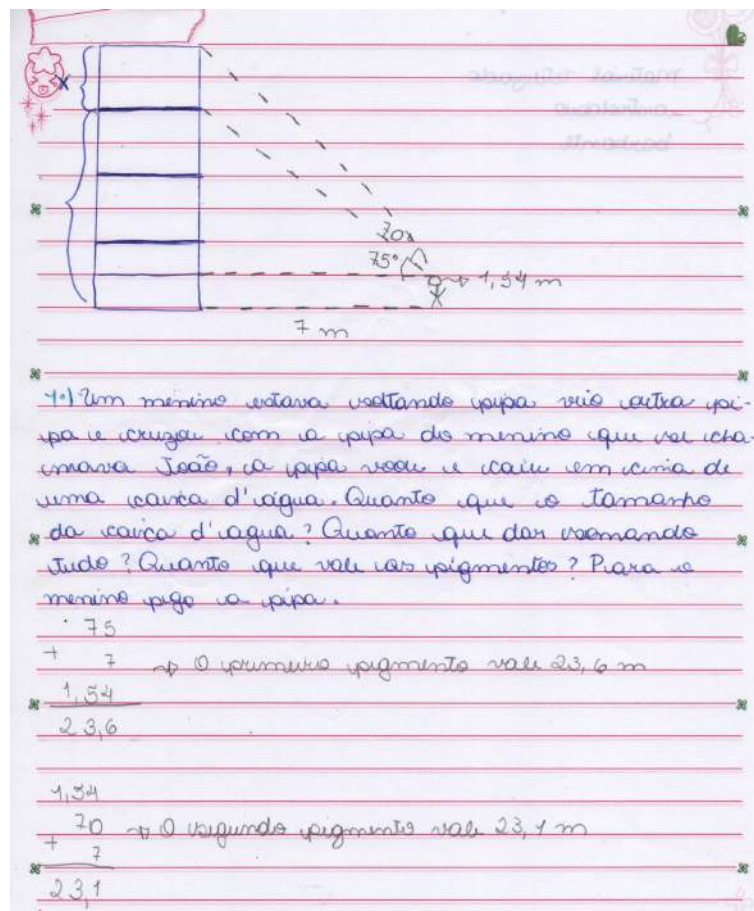 x
70°
75°
1,54 m
7 m
1º) Um menino estava soltando pipa veio outra pi-
pa e cruzou com a pipa do menino que se cha-
mava João, a pipa voou e caiu em cima de
uma caixa d'água. Quanto que é o tamanho
da caixa d'agua? Quanto que dar somando
tudo? Quanto que vale os pigmentos? Para o
menino pego a pipa.
75
+ 7 → O primeiro pigmento vale 23,6 m
1,54
23,6
1,54
+ 70 → O segundo pigmento vale 23,1 m
7
23,1